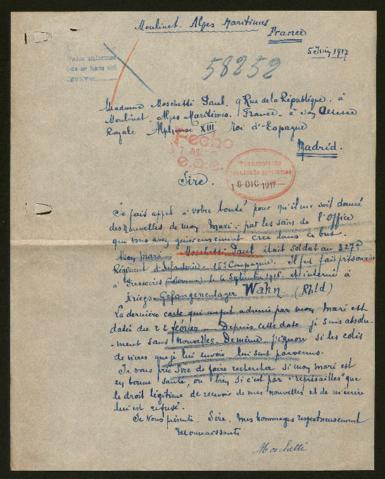 Moulinet Alpes Maritimes
France
5 Juin 1917
58252
Madame Moschetti Paul, 9 Rue de la République, à
Moulinet, Alpes Maritimes, France, à Son
Royale Alphonse XIII roi d'Espagne
Madrid.
Fecho
16 DIC 1917
Sire,
Je fais appel à votre bonté pour qu'il me soit donné
des nouvelles de mon Mari, par les soins de l'Office
que vous avez généreusement créé dans ce but.
Mon mari Moschetti Paul était soldat au 327e
Régiment d'Infanterie 15e Compagnie. Il fut fait prisonnier
le 6 septembre et interné à
Kriegs Gefangenenlager Wahn (Rhld)
La dernière carte qui m'est adressée par mon Mari est
datée du 22 février. Depuis cette date je suis absolu-
ment sans nouvelles de même j'ignore si les colis
de vivres que je lui envoie lui sont parvenus.
Je vous prie Sire de faire rechercher si mon mari est
en bonne santé, ou bien, si c'est par "représailles" que
le droit légitime de recevoir de mes nouvelles et de m'écrire
lui est refusé.
Je Vous présente Sire, Mes hommages respectueusement
reconnaissants
Moschetti